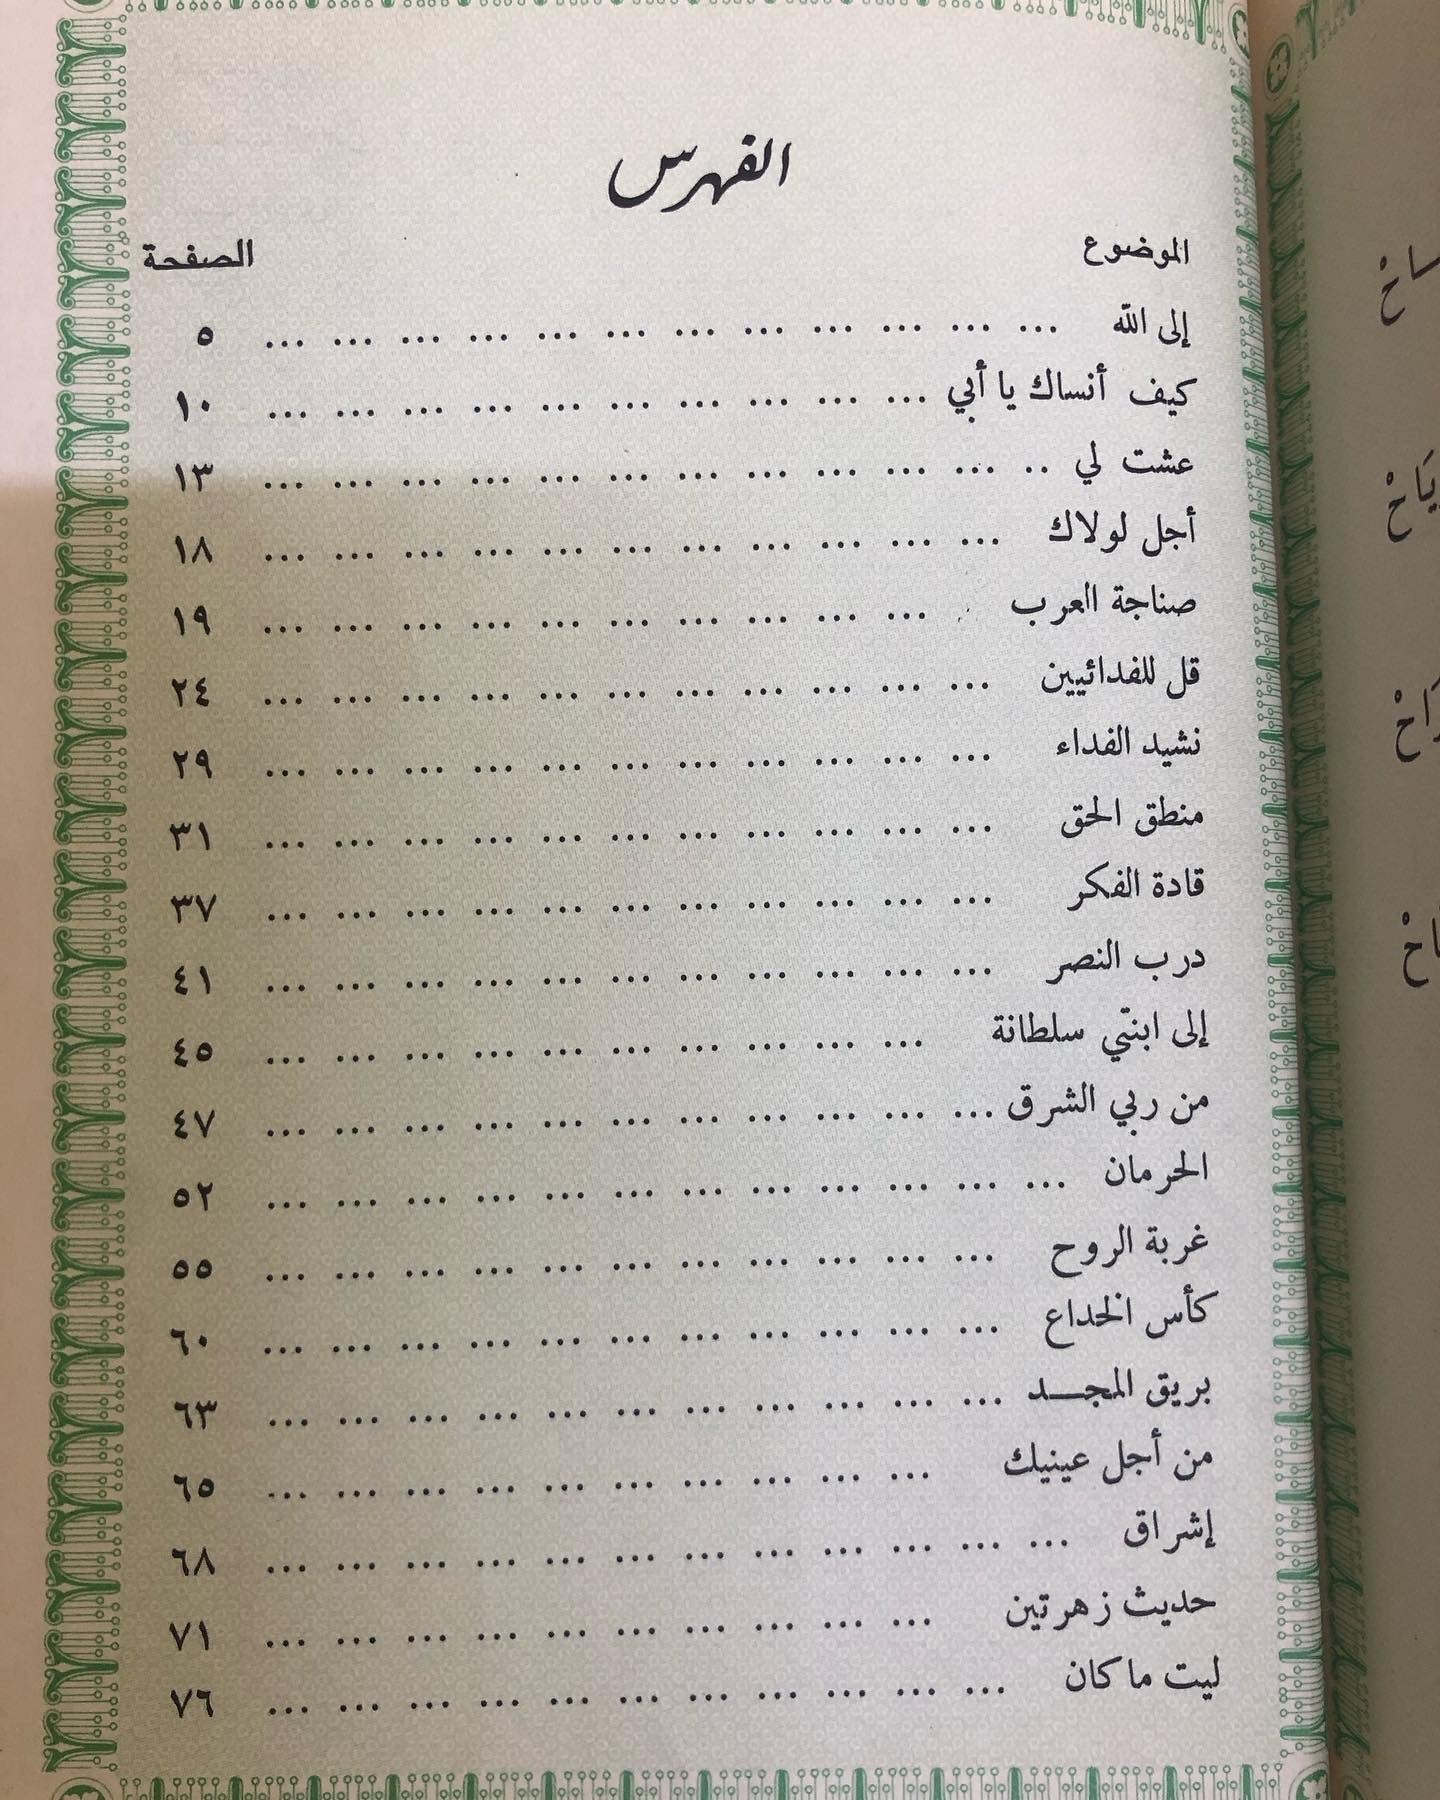 الفهرس
الموضوع الصفحة
إلى الله ... ... ... ... ... ... ... ... ... ... ... ... ٥
كيف أنساك يا أبي ... ... ... ... ... ... ... ... ... ... ١٠
عشت لي .. ... ... ... ... ... ... ... ... ... ... ... ١٣
أجل لولاك ... ... ... ... ... ... ... ... ... ... ... ١٨
صناجة العرب ... ... ... ... ... ... ... ... ... ... ١٩
قل للفدائيين ... ... ... ... ... ... ... ... ... ... ... ٢٤
نشيد الفداء ... ... ... ... ... ... ... ... ... ... ... ٢٩
منطق الحق ... ... ... ... ... ... ... ... ... ... ... ٣١
قادة الفكر ... ... ... ... ... ... ... ... ... ... ... ٣٧
درب النصر ... ... ... ... ... ... ... ... ... ... ... ٤١
إلى ابنتي سلطانة ... ... ... ... ... ... ... ... ... ... ٤٥
من ربي الشرق ... ... ... ... ... ... ... ... ... ... ... ٤٧
الحرمان ... ... ... ... ... ... ... ... ... ... ... ... ٥٢
غربة الروح ... ... ... ... ... ... ... ... ... ... ... ٥٥
كأس الخداع ... ... ... ... ... ... ... ... ... ... ... ٦٠
بريق المجـــد ... ... ... ... ... ... ... ... ... ... ... ٦٣
من أجل عينيك ... ... ... ... ... ... ... ... ... ... ٦٥
إشراق ... ... ... ... ... ... ... ... ... ... ... ... ٦٨
حديث زهرتين ... ... ... ... ... ... ... ... ... ... ٧١
ليت ما كان ... ... ... ... ... ... ... ... ... ... ... ٧٦